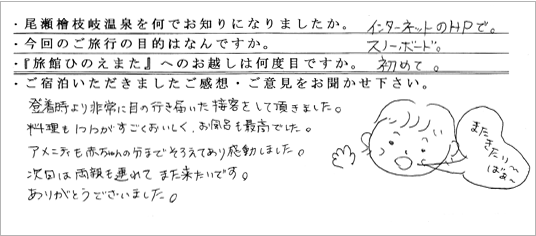 ・尾瀬檜枝岐温泉を何でお知りになりましたか。 インターネットのHPで。
・今回のご旅行の目的はなんですか。 スノーボード。
・『旅館ひのえまた』へのお越しは何度目ですか。 初めて。
・ご宿泊いただきましたご感想・ご意見をお聞かせ下さい。
到着時より非常に目の行き届いた接客をして頂きました。
料理も1つ1つがすごくおいしく、お風呂も最高でした。
アメニティも赤ちゃんの分までそろえてあり感動しました。
次回は両親も連れてまた来たいです。
ありがとうございました。
また
きたい〜
ばぁ〜